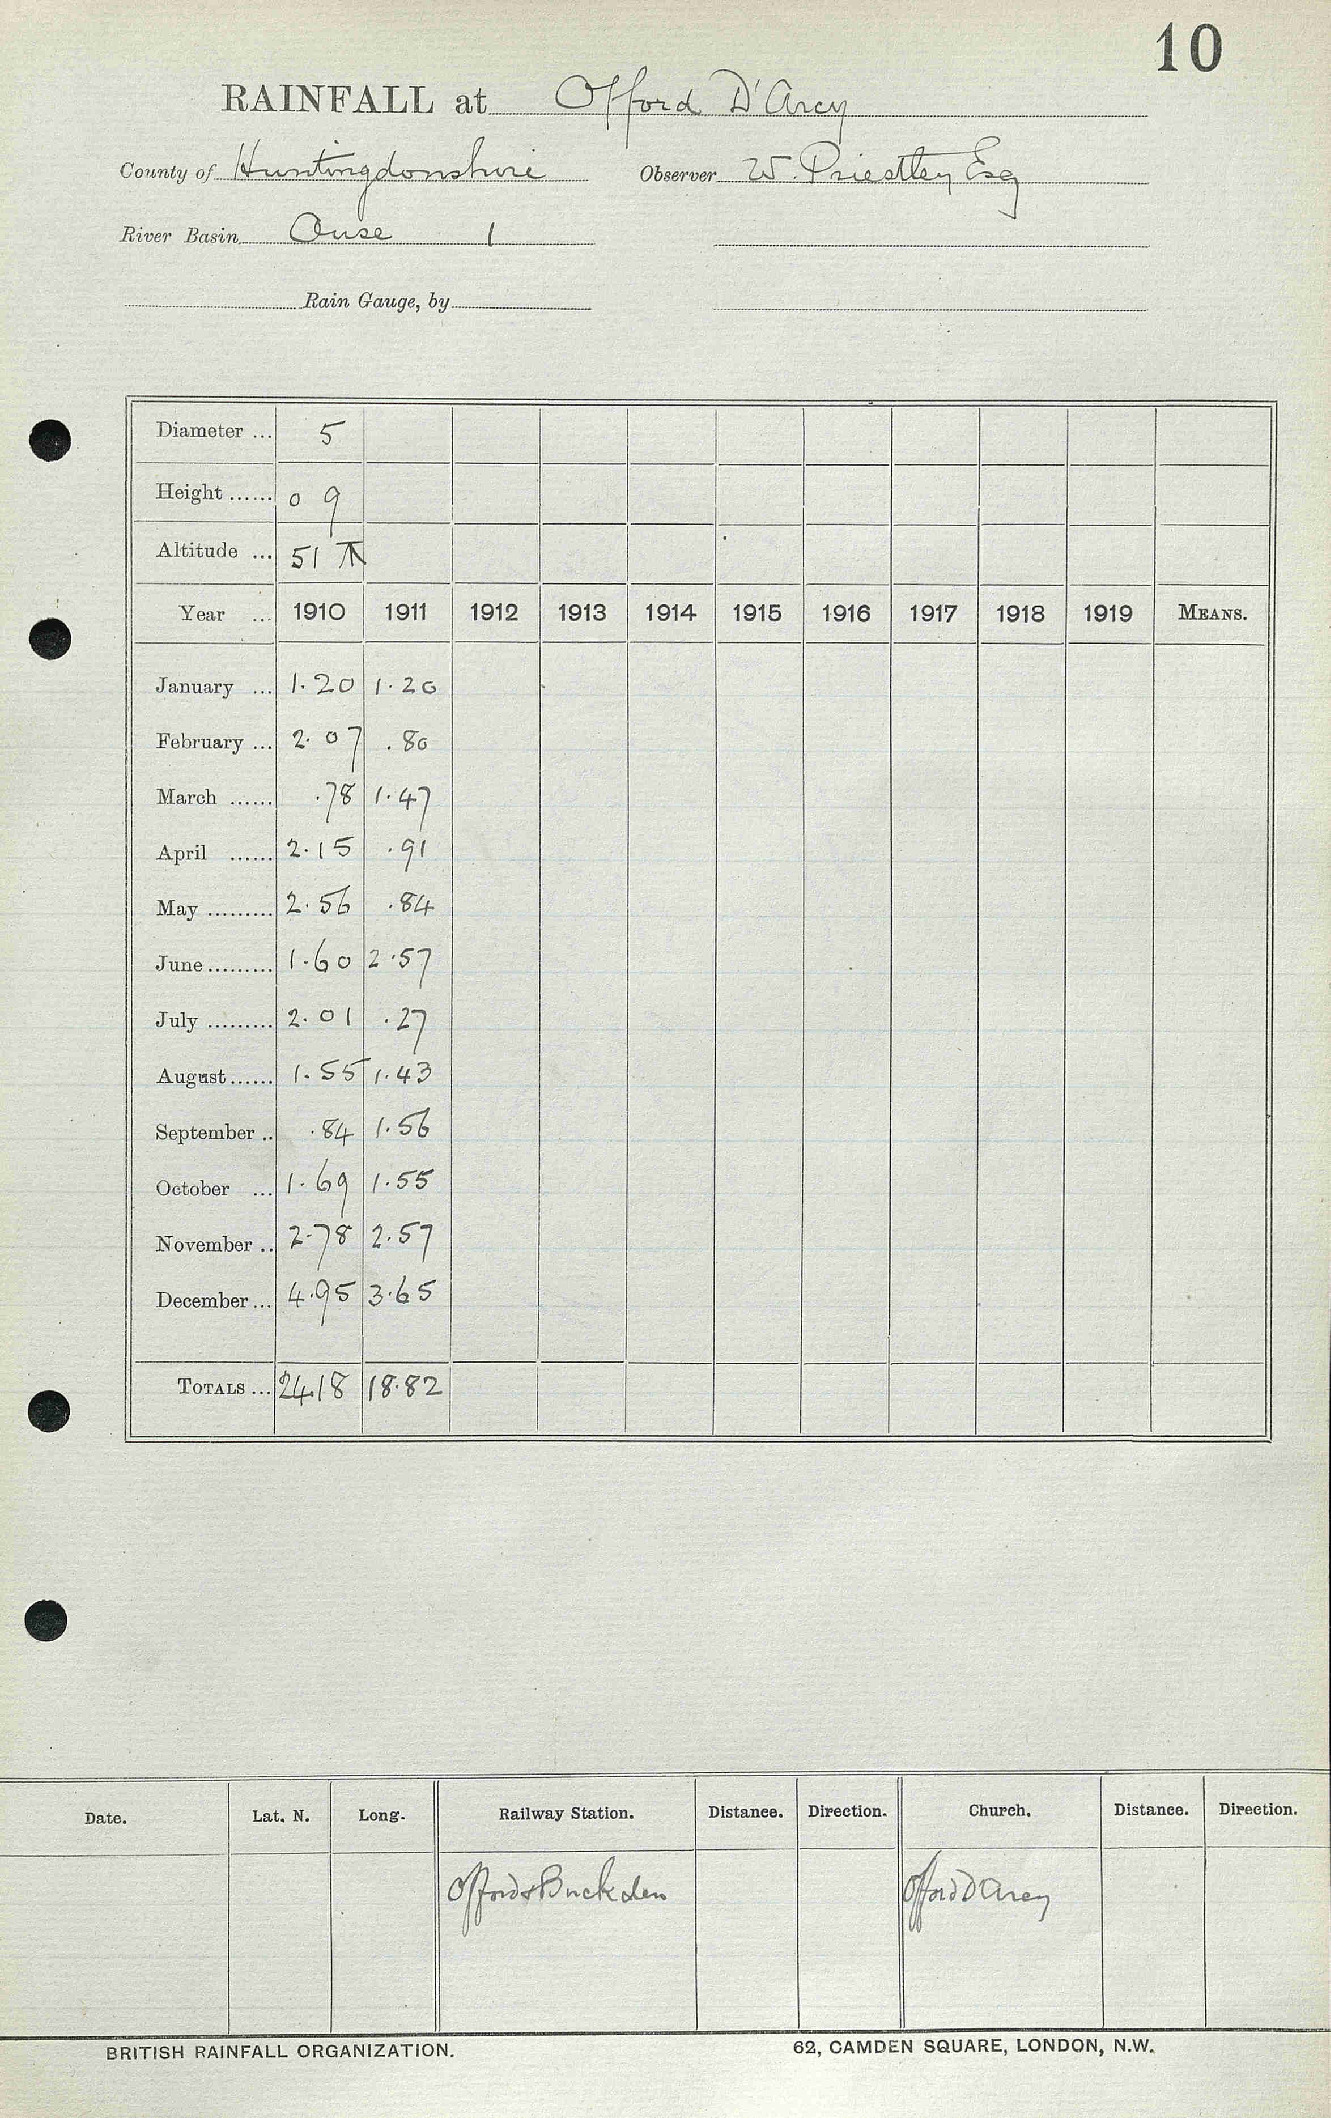 10
RAINFALL at Offord D'Arcy
County of Huntingdonshire Observer W. Priestley Esq
River Basin Ouse 1
Rain Gauge, by
Diameter ... 5
Height ...... 0 9
Altitude ... 51
Year ... 1910 1911 1912 1913 1914 1915 1916 1917 1918 1919 MEANS.
January ... 1.20 1.20
February ... 2.07 .80
March ...... .78 1.47
April ...... 2.15 .91
May ......... 2.56 .84
June ......... 1.60 2.57
July ......... 2.01 .27
August ...... 1.55 1.43
September .. .84 1.56
October ... 1.69 1.55
November .. 2.78 2.57
December ... 4.95 3.65
TOTALS ... 24.18 18.82
Date. Lat. N. Long. Railway Station. Distance. Direction. Church. Distance. Direction.
Offord & Buckden Offord D'Arcy
BRITISH RAINFALL ORGANIZATION. 62, CAMDEN SQUARE, LONDON, N.W.